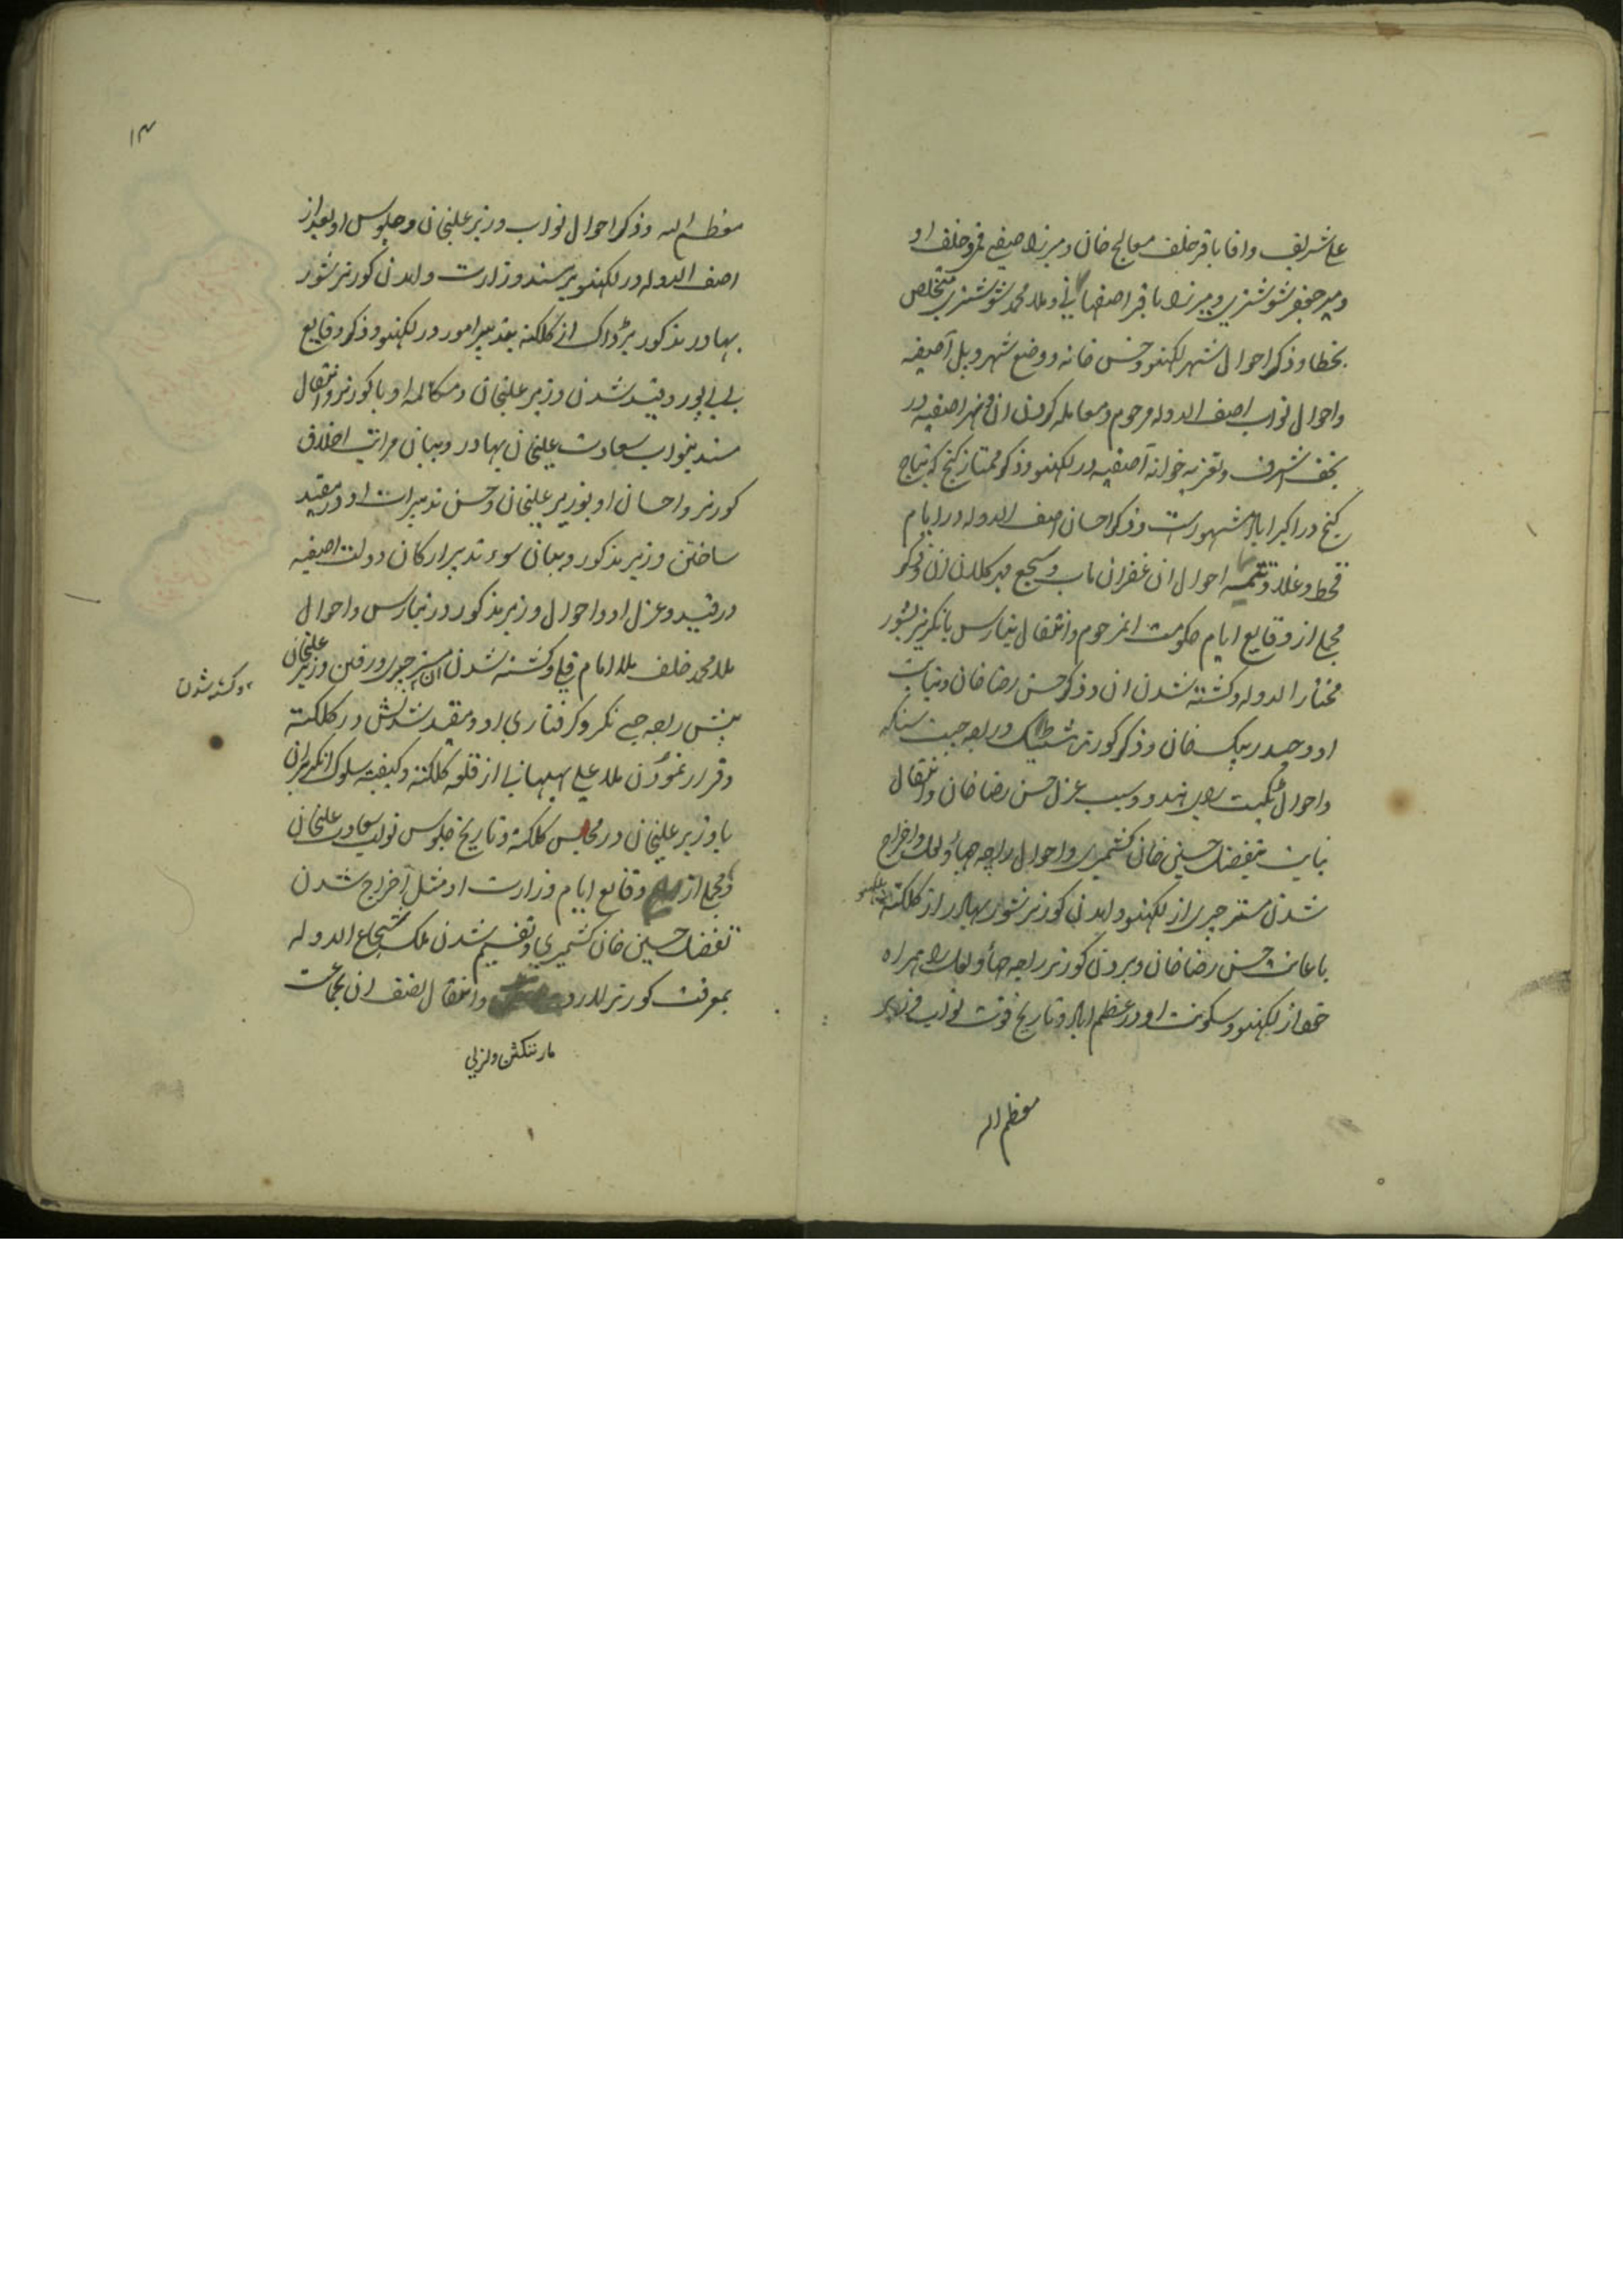 علی شریف واقا باقر خلف معالج خان و میرزا صیفی قمی و خلف او
و میر جعفر شوشتری و میرزا باقر اصفهانی و ملا محمد شوشتری متخلص
بخطا و ذکر احوال شهر لکهنو و خس خانه و وضع شهر و پل آصفیه
و احوال نواب اصف الدوله مرحوم و معامله کردن ان و نهر اصفیه در
نجف اشرف و تعزیه خوانه آصفیه در لکهنو و ذکر ممتاز کنج که بتاج
کنج در اکبراباد مشهور است و ذکر احسان اصف الدوله در ایام
قحط و غلا و تتمه احوال ان غفران ماب و سجع مهر کلان ان و ذکر
مجملی از وقایع ایام حکومت انمرحوم و انتقال بنارس بانکریز بشور
مختار الدوله و کشته شدن ان و ذکر حسن رضا خان و نیابت
او و حیدر بیک خان و ذکر کورنر هشتینک و راجه جیت سنکه
و احوال تکیت رای هندو و سبب عزل حسن رضا خان و انتقال
نیابت بتفضل حسین خان کشمیری و احوال راجه جهاؤلعل و اخراج
شدن مستر چیری از لکهنو و امدن کورنر شور بهادر از کلکته
باعانت حسن رضا خان و بردن کورنر راجه جهاؤلعل را همراه
خود از لکهنو و سکونت او در عظیم اباد و تاریخ فوت نواب وزیر
معظم الیه
۱۳
معظم الیه و ذکر احوال نواب وزیر علیخان و جلوس او بعد از
اصف الدوله در لکهنو بر مسند وزارت و امدن کورنر شور
بهادر مذکور بر ڈاک از کلکته بتدبیر امور در لکهنو و ذکر وقایع
بی بی پور و قید شدن وزیر علیخان و مکالمه او با کورنر و انتقال
مسند بنواب سعادت علیخان بهادر و بیان مراتب اخلاق
کورنر و احسان او بوزیر علیخان و حسن تدبیرات او در مقید
ساختن وزیر مذکور و بیان سوء تدبیر ارکان دولت اصفیه
در قید و عزل او و احوال وزیر مذکور در بنارس و احوال
ملا محمد خلف ملا امام قلی و کشته شدن ان مستر چیری و رفتن وزیر علیخان
و کشته شدن
پیش راجه جی نکر و کرفتاری او و مقید شدنش در کلکته
و قرار نمودن ملا علی بهبهانی از قلعه کلکته و کیفیت سلوک انکریزان
با وزیر علیخان در محبس کلکته و تاریخ جلوس نواب سعادت علیخان
و مجملی از وقایع ایام وزارت او مثل اخراج شدن
تفضل حسین خان کشمیری و تقسیم شدن ملک شجاع الدوله
بمعرفت کورنر لارد و انتقال نصف ان بجماعت
مارننکتن ولزلی